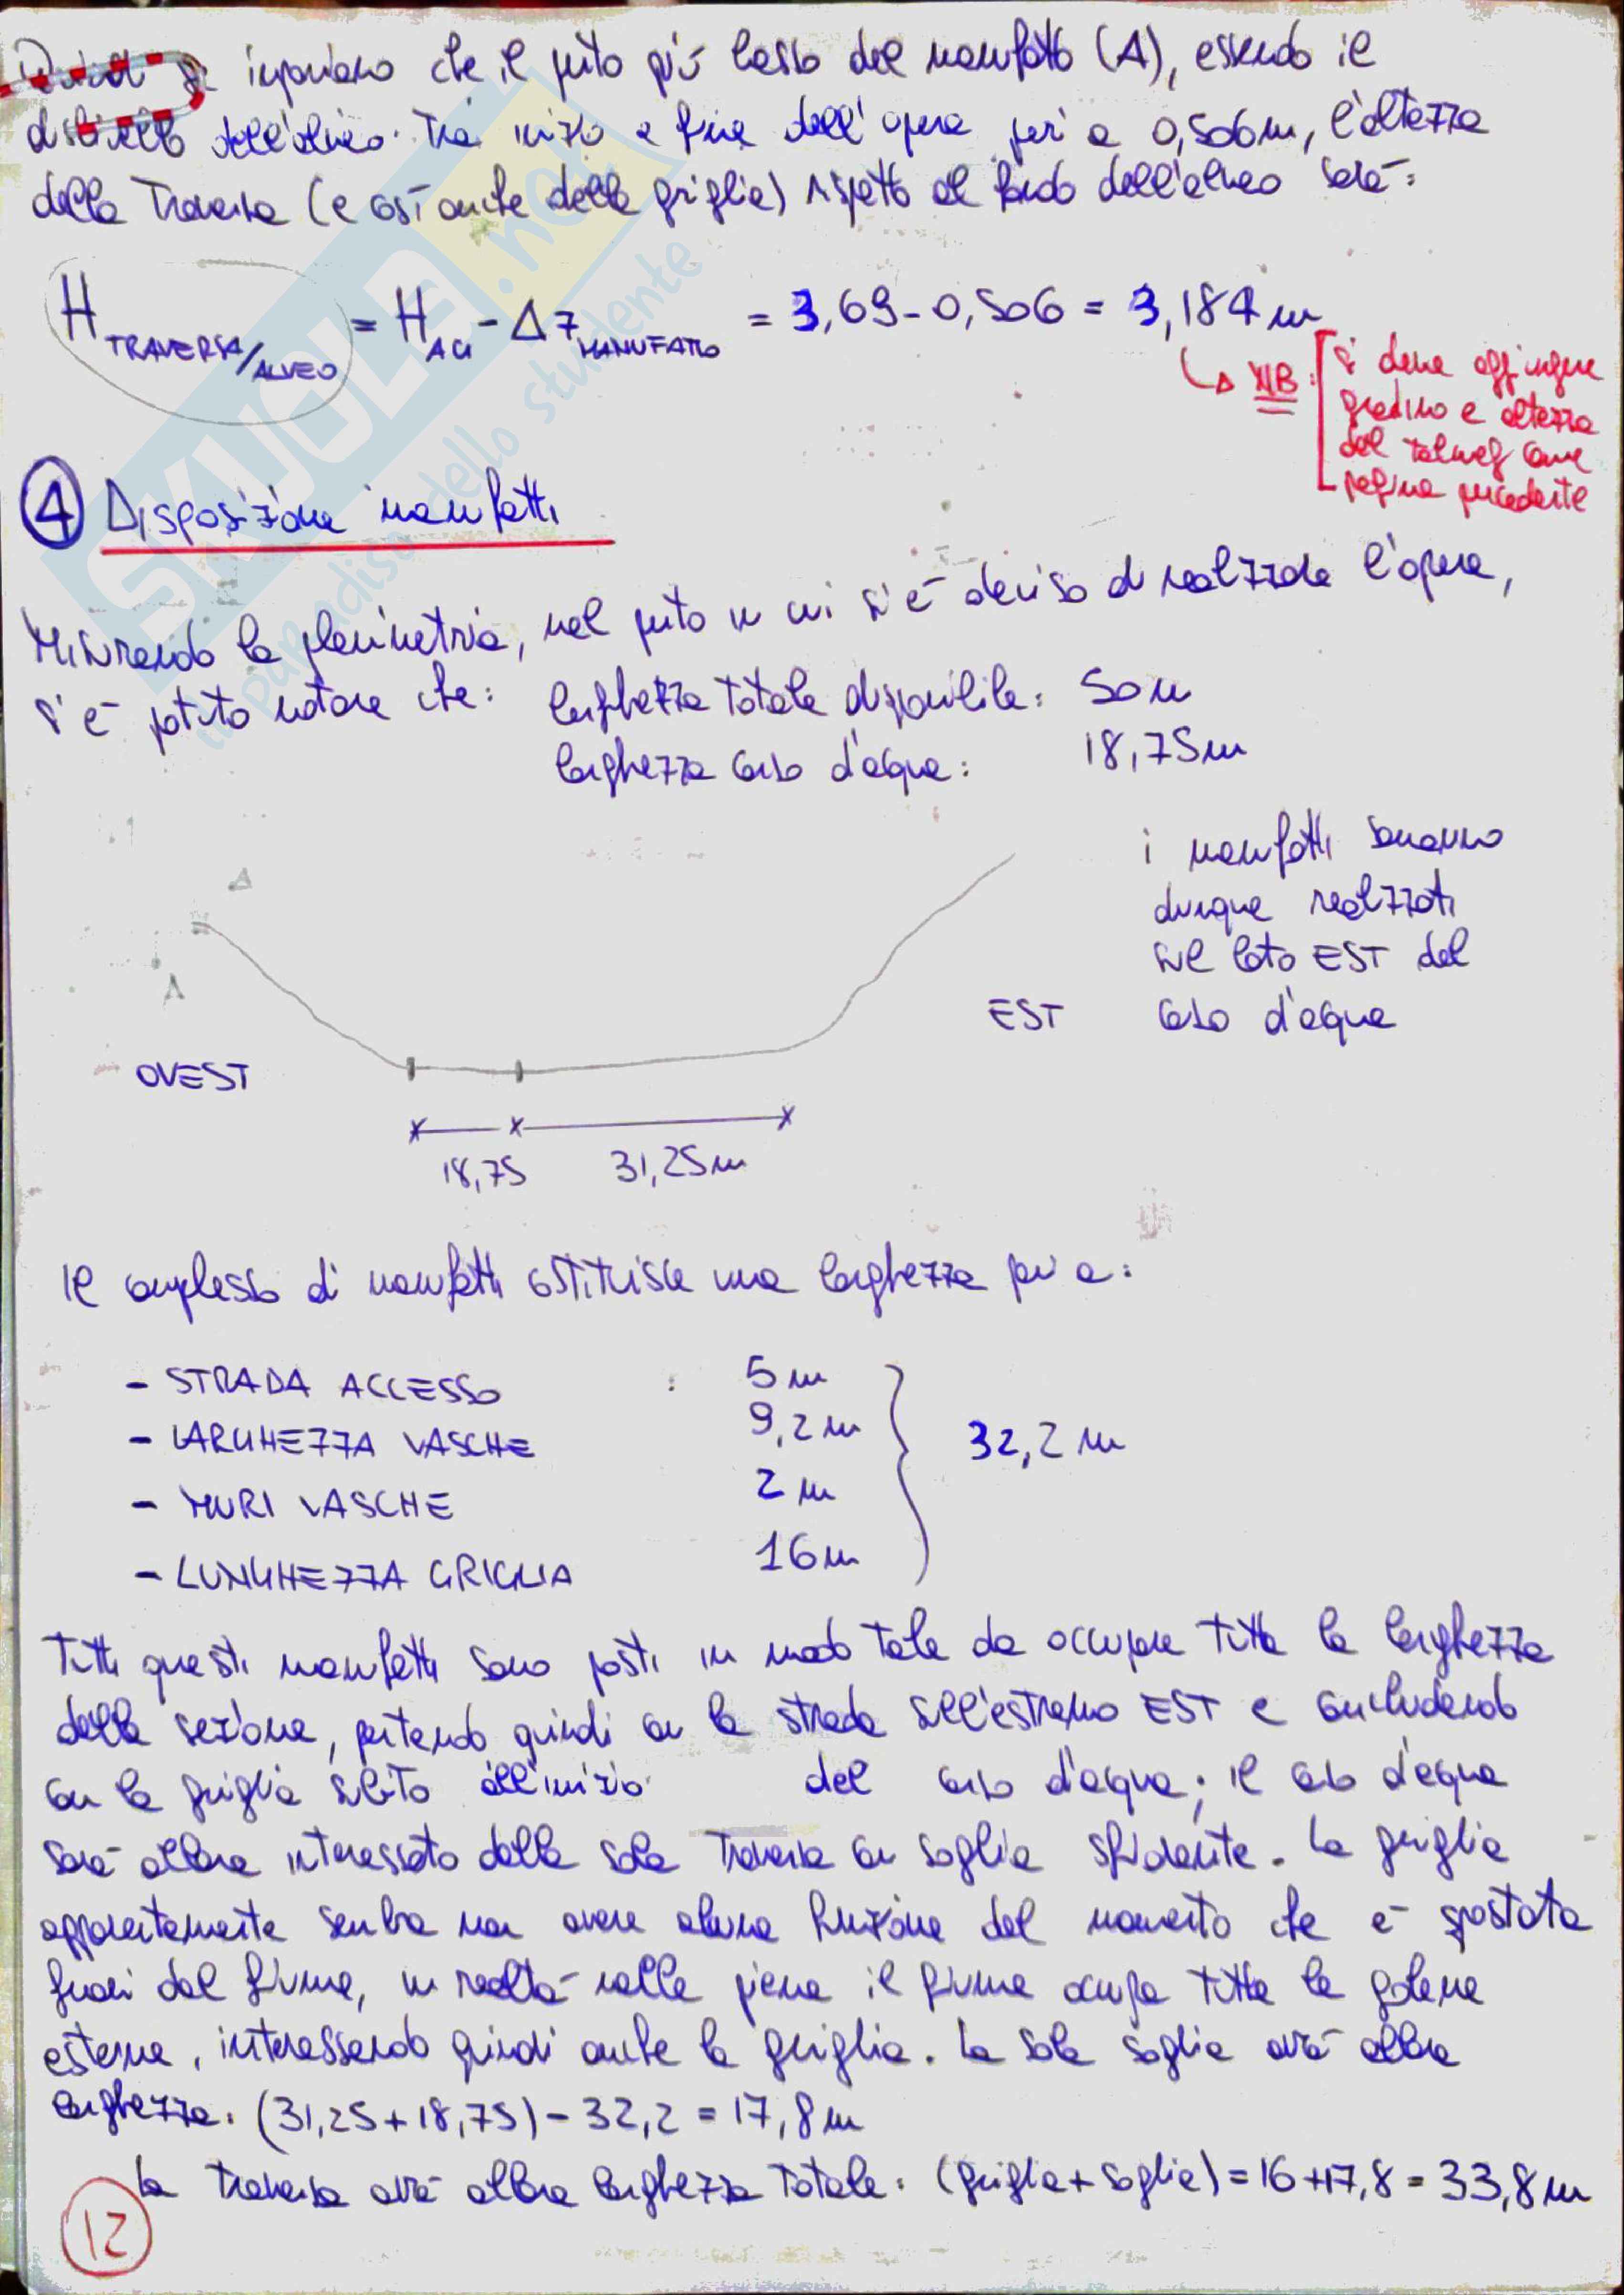 si imponiamo che il punto più basso del manufatto (A), essendo il
dislivello dell'alveo tra inizio e fine dell'opera pari a 0,506m, l'altezza
della traversa (e così anche della griglia) rispetto al fondo dell'alveo sarà:
H TRAVERSA/ALVEO = H AG - ΔZ MANUFATTO = 3,69 - 0,506 = 3,184 m
NB: si deve aggiungere
gradino e altezza
del talweg come
pagina precedente
4 Disposizione manufatti
Misurando la planimetria, nel punto in cui si è deciso di realizzare l'opera,
si è potuto notare che: larghezza totale disponibile: 50 m
larghezza corso d'acqua: 18,75m
i manufatti saranno
dunque realizzati
sul lato EST del
corso d'acqua
EST
OVEST
18,75 31,25m
Il complesso di manufatti costituisce una larghezza pari a:
- STRADA ACCESSO : 5 m
- LARGHEZZA VASCHE 9,2 m
- MURI VASCHE 2 m
- LUNGHEZZA GRIGLIA 16m
32,2 m
Tutti questi manufatti sono posti in modo tale da occupare tutta la larghezza
della sezione, partendo quindi con la strada sull'estremo EST e concludendo
con la griglia subito all'inizio del corso d'acqua; il corso d'acqua
sarà allora interessato dalla sola traversa con soglia sfiorante. La griglia
apparentemente sembra non avere alcuna funzione dal momento che è spostata
fuori dal fiume, in realtà nelle piene il fiume occupa tutta la golena
esterna, interessando quindi anche la griglia. La sola soglia avrà allora
larghezza: (31,25+18,75) - 32,2 = 17,8 m
La traversa avrà allora larghezza totale: (griglia + soglia) = 16+17,8 = 33,8 m
12
SKUOLA.net
il paradiso dello studente